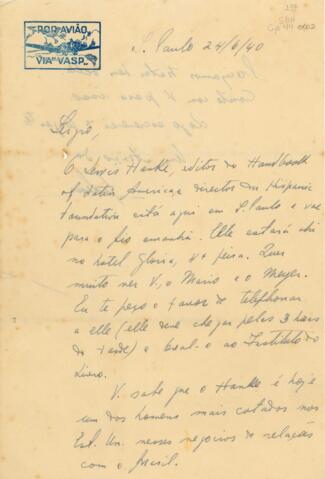 POR AVIÃO
VIA "VASP"
S. Paulo 24/6/40
Sergio,
O Lewis Hanke, editor do Handbook
of Latin American e director da Hispanic
Foundation está aqui em S. Paulo e vae
para o Rio amanhã. Elle estará ahi
no hotel Gloria, 4a feira. Quer
muito ver V., o Mario e o Meyer.
Eu te peço o favor de telephonar
a elle (elle deve chegar pelas 3 horas
da tarde) e leval-o ao Instituto do
Livro.
V. sabe que o Hanke é hoje
um dos homens mais cotados nos
Est. Un. nesses negocios de relações
com o Brasil.